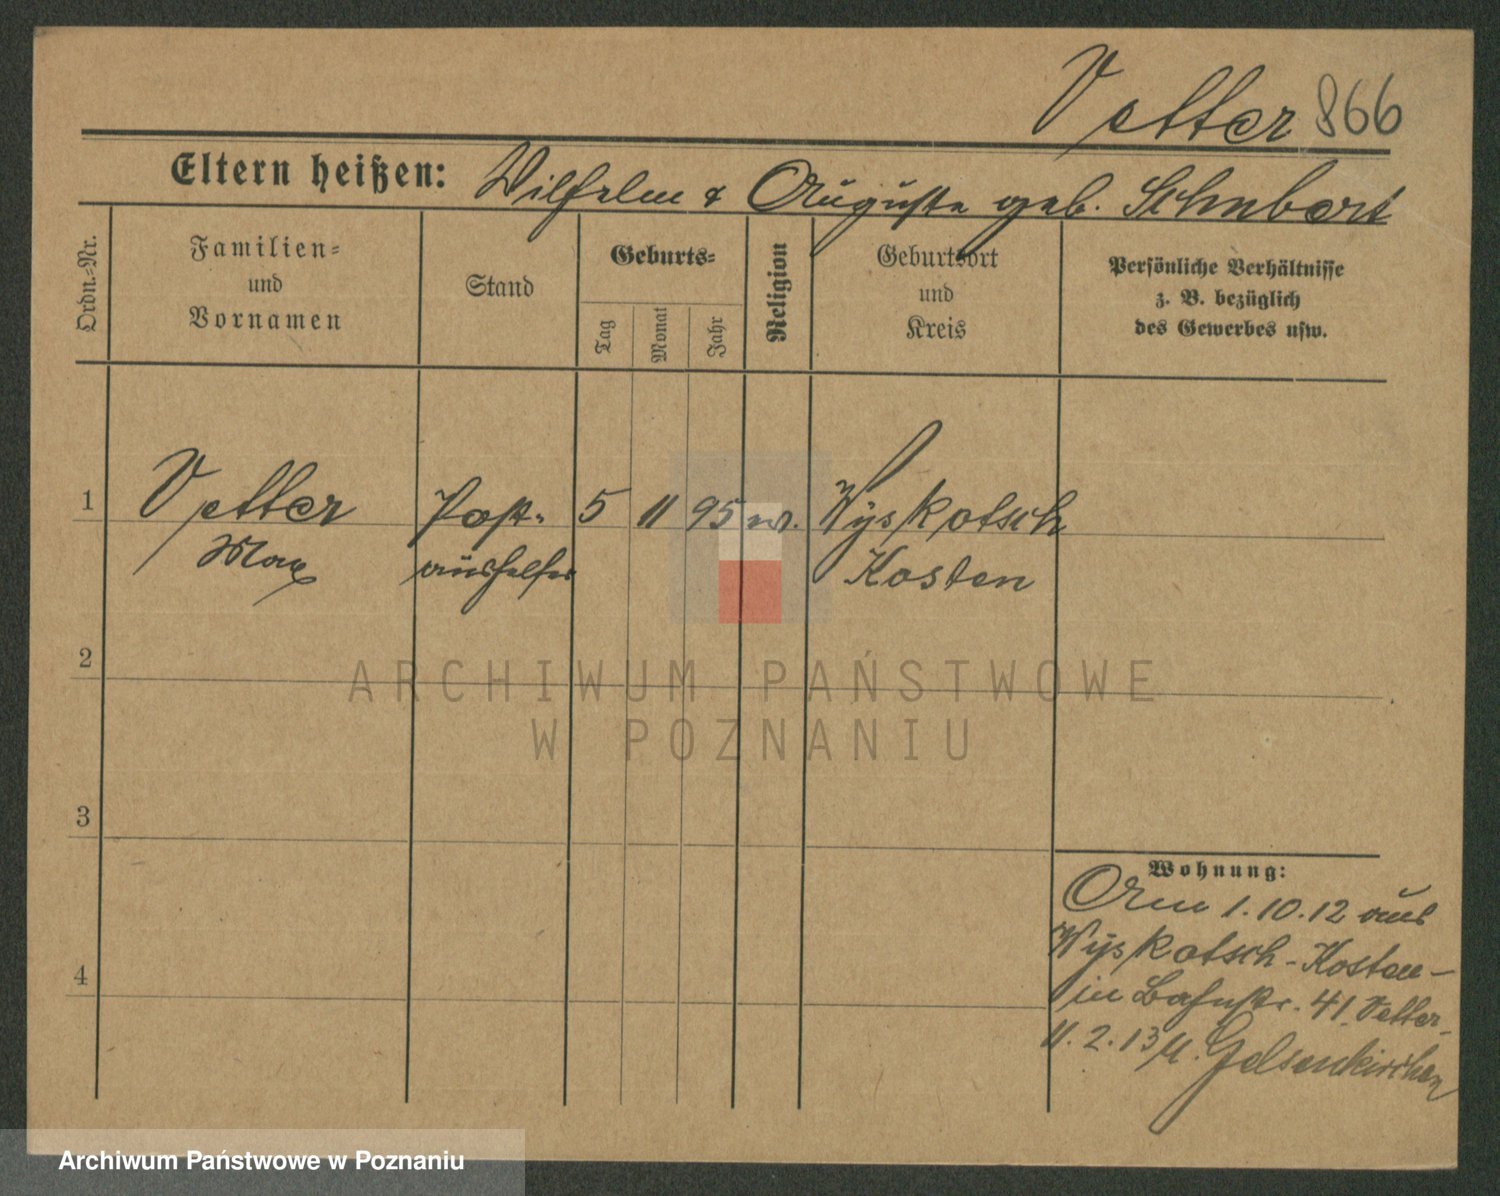 Vetter 866
Eltern heißen: Wilhelm & Auguste geb. Schubart
Ordn.=Nr.
Familien=
und
Vornamen
Stand
Geburts=
Tag
Monat
Jahr
Religion
Geburtsort
und
Kreis
Persönliche Verhältnisse
z. B. bezüglich
des Gewerbes usw.
1 Vetter Post- 5 11 95 Wyskotsch
Max aushelfer Kosten
2
ARCHIWUM PAŃSTWOWE
W POZNANIU
3
Wohnung:
Am 1.10.12 aus
Wyskotsch-Kosten-
in Bahnstr. 41. Vetter-
11.2.13 n. Gelsenkirchen
4
Archiwum Państwowe w Poznaniu